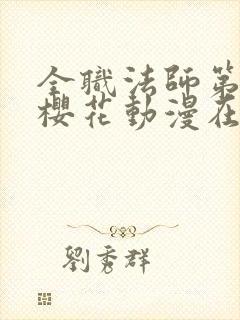 全職法師第
櫻花動漫在
劉秀群